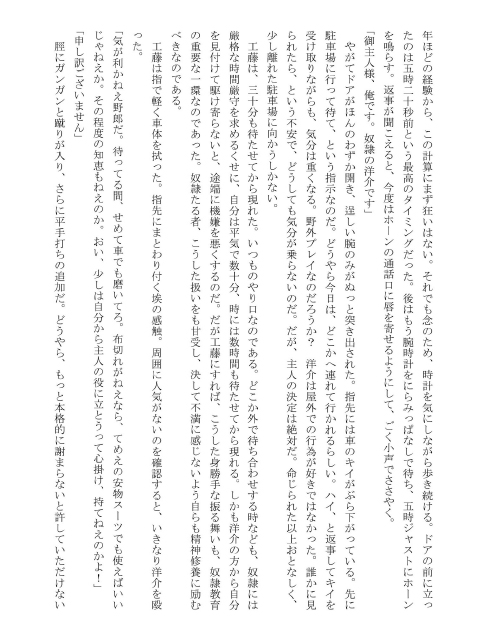 年ほどの経験から、この計算にまず狂いはない。それでも念のため、時計を気にしながら歩き続ける。ドアの前に立っ
たのは五時二十秒前という最高のタイミングだった。後はもう腕時計をにらみっぱなしで待ち、五時ジャストにホーン
を鳴らす。返事が聞こえると、今度はホーンの通話口に唇を寄せるようにして、ごく小声でささやく。
「御主人様、俺です。奴隷の洋介です」
やがてドアがほんのわずか開き、逞しい腕のみがぬっと突き出された。指先には車のキイがぶら下がっている。先に
駐車場に行って待て、という指示なのだ。どうやら今日は、どこかへ連れて行かれるらしい。ハイ、と返事してキイを
受け取りながらも、気分は重くなる。野外プレイなのだろうか？　洋介は屋外での行為が好きではなかった。誰かに見
られたら、という不安で、どうしても気分が乗らないのだ。だが、主人の決定は絶対だ。命じられた以上おとなしく、
少し離れた駐車場に向かうしかない。
工藤は、三十分も待たせてから現れた。いつものやり口なのである。どこか外で待ち合わせする時なども、奴隷には
厳格な時間厳守を求めるくせに、自分は平気で数十分、時には数時間も待たせてから現れる。しかも洋介の方から自分
を見付けて駆け寄らないと、途端に機嫌を悪くするのだ。だが工藤にすれば、こうした身勝手な振る舞いも、奴隷教育
の重要な一環なのであった。奴隷たる者、こうした扱いをも甘受し、決して不満に感じないよう自らも精神修養に励む
べきなのである。
工藤は指で軽く車体を拭った。指先にまとわり付く埃の感触。周囲に人気がないのを確認すると、いきなり洋介を殴
った。
「気が利かねえ野郎だ。待ってる間、せめて車でも磨いてろ。布切れがねえなら、てめえの安物スーツでも使えばいい
じゃねえか。その程度の知恵もねえのか。おい、少しは自分から主人の役に立とうって心掛け、持てねえのかよ！」
「申し訳ございません」
脛にガンガンと蹴りが入り、さらに平手打ちの追加だ。どうやら、もっと本格的に謝まらないと許していただけない